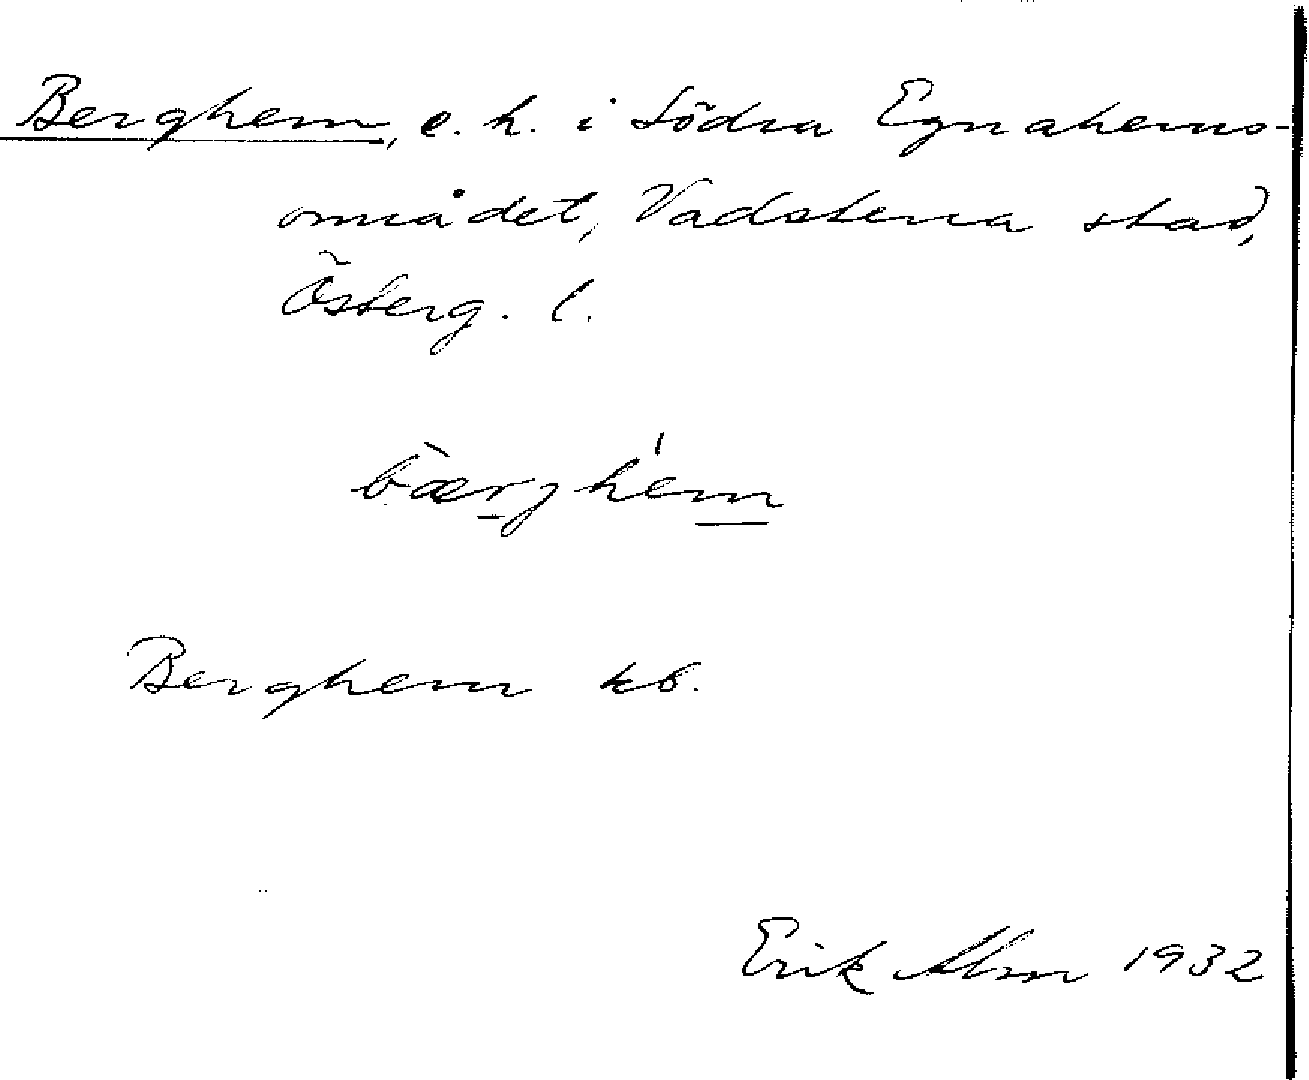 Berghem, e. h. i Södra Egnahems-
området, Vadstena stad,
Österg. l.
bæ̀rjhem
Berghem kb.
Erik Alm 1932